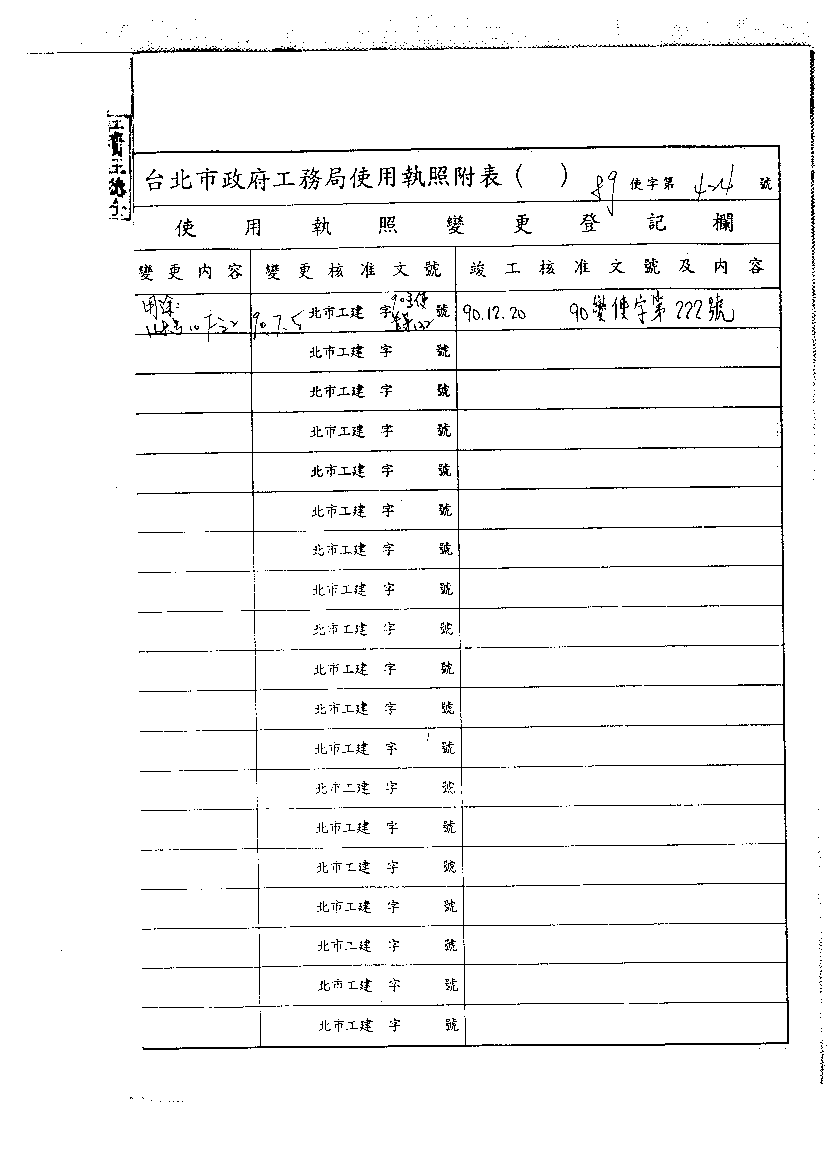 台北市政府工務局使用執照附表（ ） 89 使字第 424 號
使用執照變更登記欄
變更內容 變更核准文號 竣工核准文號及內容
用途: 90.7.5 北市工建 字 號 90.12.20 90變使字第222號
北市工建 字 號
北市工建 字 號
北市工建 字 號
北市工建 字 號
北市工建 字 號
北市工建 字 號
北市工建 字 號
北市工建 字 號
北市工建 字 號
北市工建 字 號
北市工建 字 號
北市工建 字 號
北市工建 字 號
北市工建 字 號
北市工建 字 號
北市工建 字 號
北市工建 字 號
北市工建 字 號